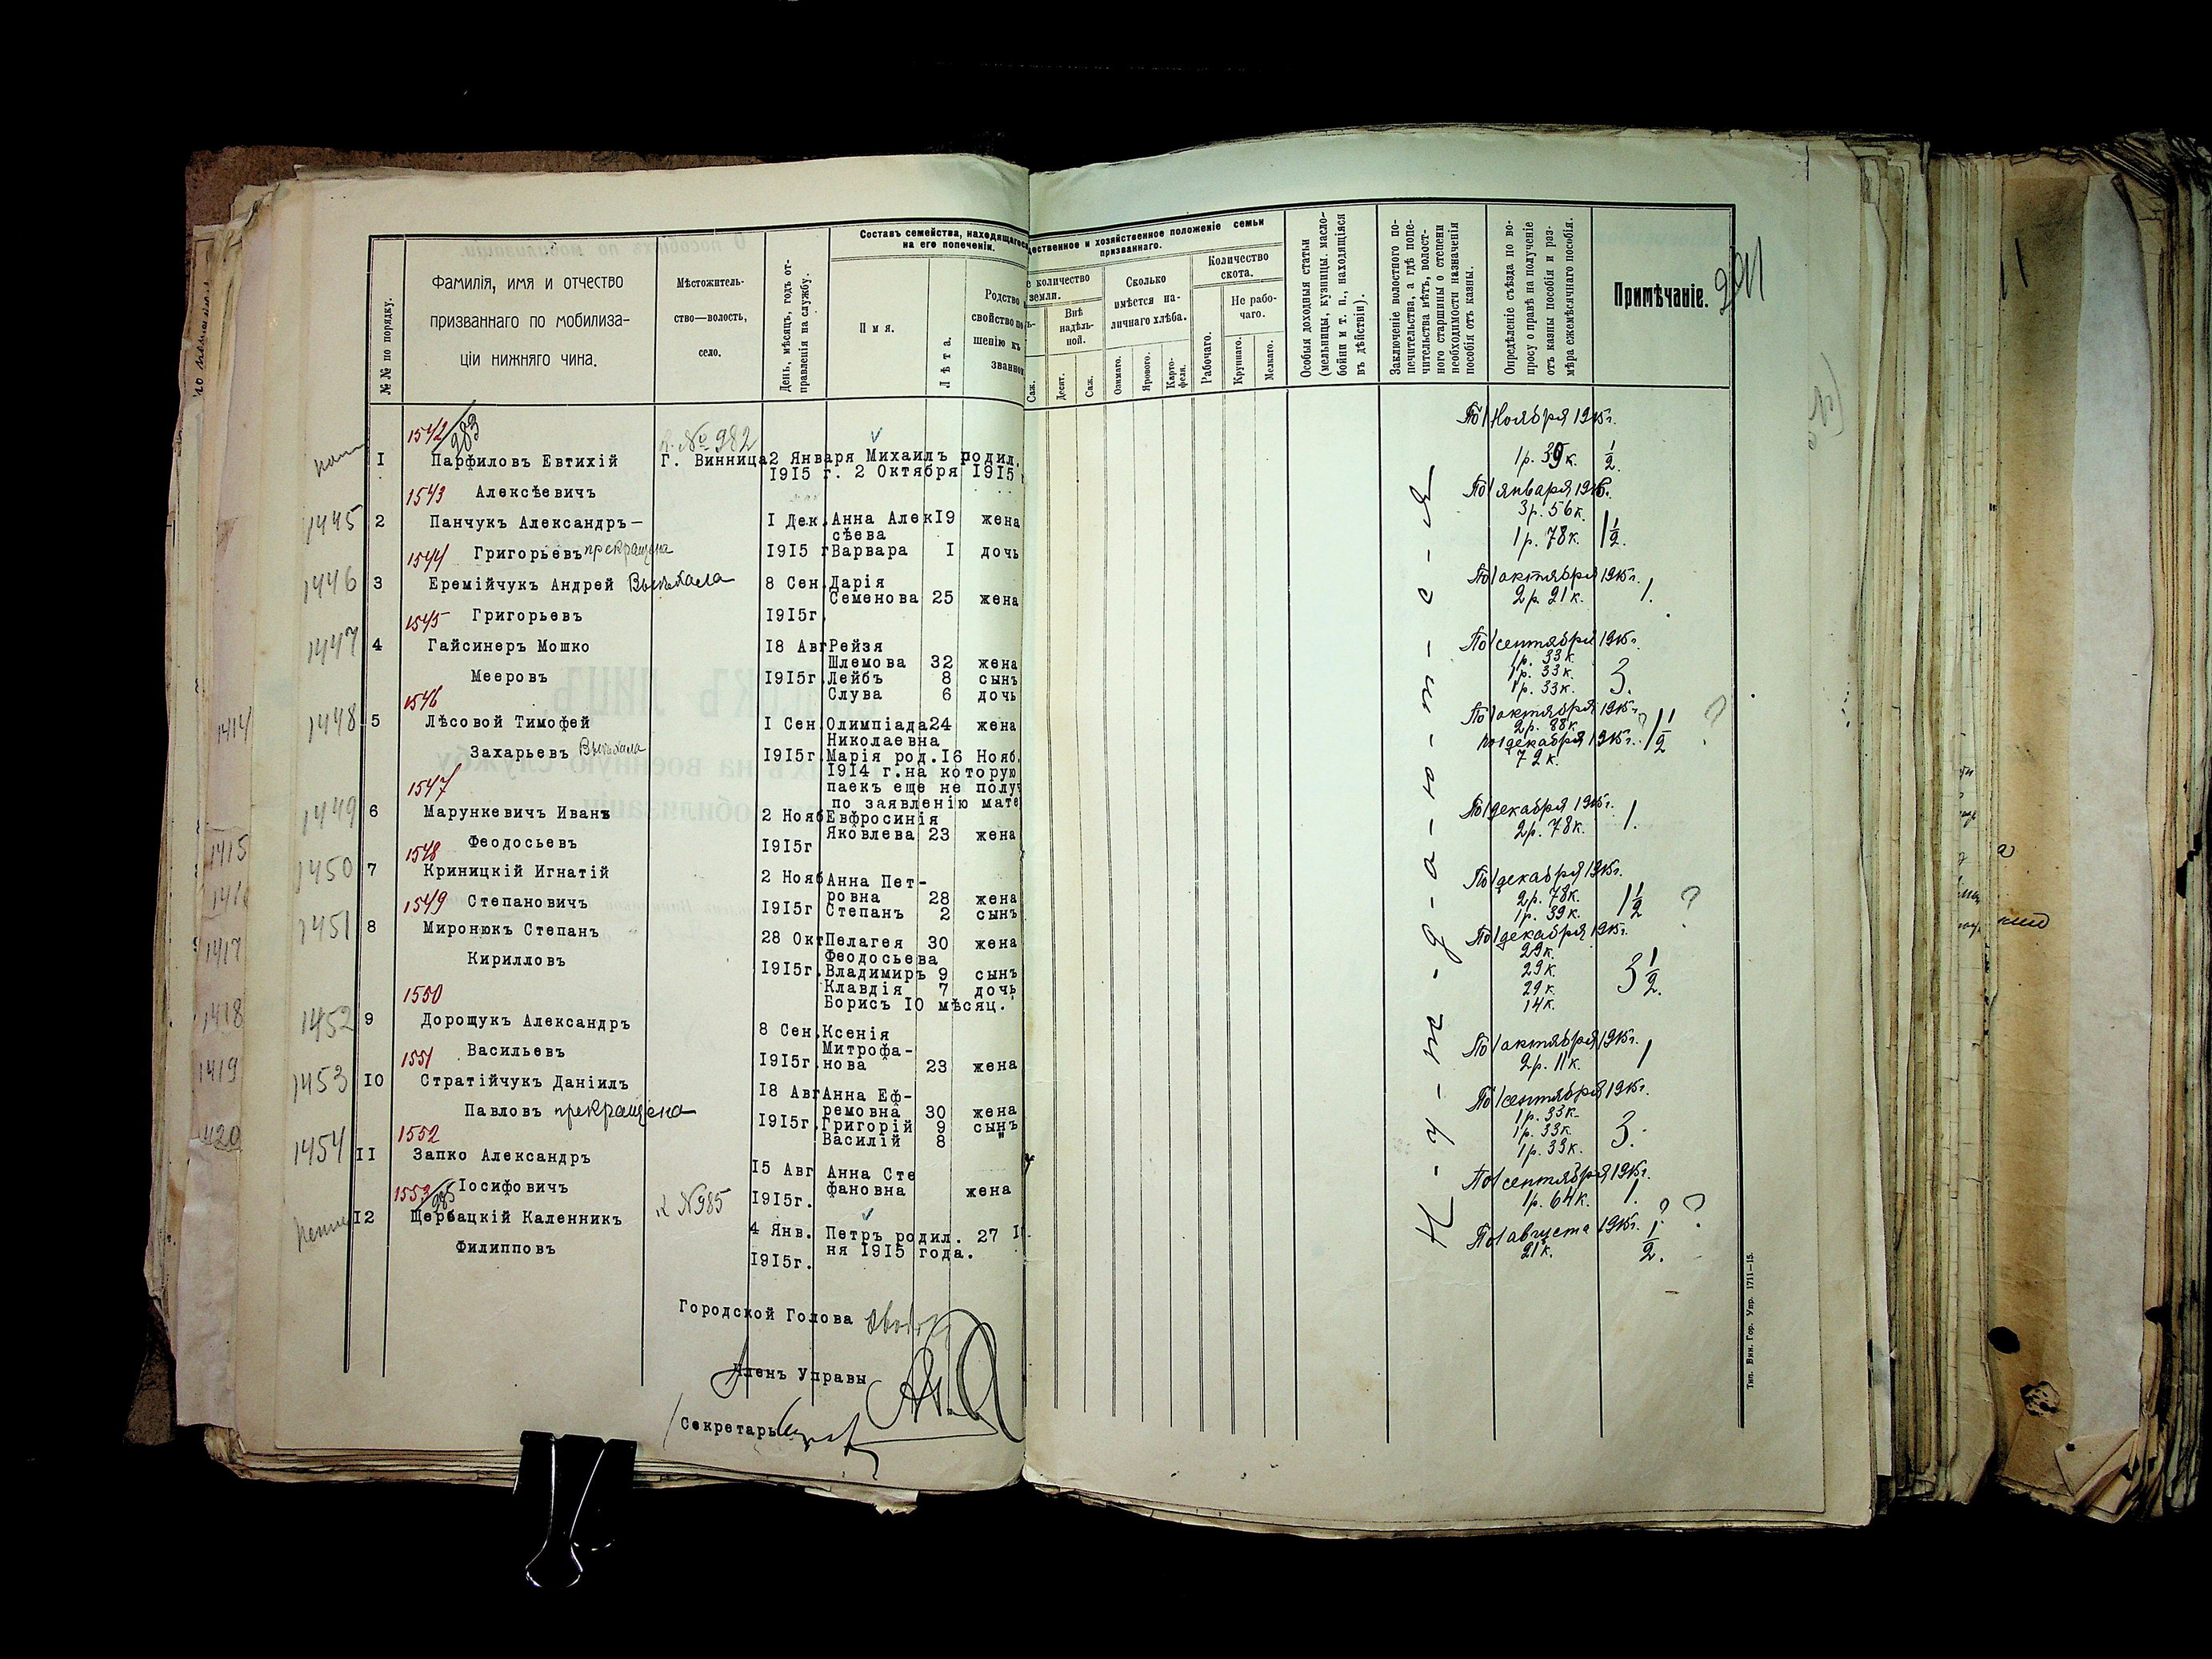 Составъ семейства, находящагося
на его попеченіи.
№№ по порядку.
Фамилія, имя и отчество
призваннаго по мобилиза-
ціи нижняго чина.
Мѣстожитель-
ство—волость,
село.
День, мѣсяцъ, годъ от-
правленія на службу.
Имя.
Лѣта.
Родство
свойство по
шенію къ
званном
1542/983
к №982
1 Парфиловъ Евтихій Г. Винница 2 Января Михаилъ родил.
1915 г. 2 Октября 1915
1543 Алексѣевичъ
1445 2 Панчукъ Александръ— 1 Дек. Анна Алек 19 жена
сѣева
1544 Григорьевъ прекращена 1915 г Варвара 1 дочь
1446 3 Еремійчукъ Андрей Выѣхала 8 Сен. Дарія
Семенова 25 жена
1545 Григорьевъ 1915г.
1447 4 Гайсинеръ Мошко 18 Авг Рейзя
Шлемова 32 жена
Мееровъ 1915г. Лейбъ 8 сынъ
1546 Слува 6 дочь
1448 5 Лѣсовой Тимофей 1 Сен. Олимпіада 24 жена
Николаевна
Захарьевъ Выѣхала 1915г. Марія род. 16 Нояб.
1914 г. на которую
1547 паекъ еще не получ
по заявленію мате
1449 6 Марункевичъ Иванъ 2 Нояб Евфросинія
Яковлева 23 жена
1548 Феодосьевъ 1915г
1450 7 Криницкій Игнатій 2 Нояб Анна Пет-
ровна 28 жена
1549 Степановичъ 1915г Степанъ 2 сынъ
1451 8 Миронюкъ Степанъ 28 Окт Пелагея 30 жена
Феодосьева
Кирилловъ 1915г. Владимиръ 9 сынъ
Клавдія 7 дочь
1550 Борисъ 10 мѣсяц.
1452 9 Дорощукъ Александръ 8 Сен. Ксенія
Митрофа-
1551 Васильевъ 1915г. нова 23 жена
1453 10 Стратійчукъ Даніилъ 18 Авг Анна Еф-
ремовна 30 жена
Павловъ прекращена 1915г. Григорій 9 сынъ
1552 Василій 8 "
1454 11 Запко Александръ 15 Авг Анна Сте
фановна жена
1553/985 Іосифовичъ 1915г.
к №985
12 Щербацкій Каленникъ 4 Янв. Петръ родил. 27
ня 1915 года.
Филипповъ 1915г.
Городской Голова
Членъ Управы
Секретарь
1414
1415
1416
1417
1418
1419
1420
щественное и хозяйственное положеніе семьи
призваннаго.
е количество
земли.
Внѣ
надѣль-
ной.
Саж.
Десят.
Саж.
Сколько
имѣется на-
личнаго хлѣба.
Озимаго.
Ярового.
Карто-
феля.
Количество
скота.
Рабочаго.
Не рабо-
чаго.
Крупнаго.
Мелкаго.
Особыя доходныя статьи
(мельницы, кузницы, масло-
бойни и т. п., находящіяся
въ дѣйствіи).
Заключеніе волостного по-
печительства, а гдѣ попе-
чительства нѣтъ, волост-
ного старшины о степени
необходимости назначенія
пособія отъ казны.
Опредѣленіе съѣзда по во-
просу о правѣ на полученіе
отъ казны пособія и раз-
мѣра ежемѣсячнаго пособія.
Примѣчаніе.
Н-у-ж-д-а-ю-т-с-я
По 1 Ноября 1915г.
1р. 39к. 1/2.
По 1 января 1916г.
3р. 56к.
1р. 78к. 1 1/2.
По 1 октября 1915г.
2р. 21к. 1.
По 1 сентября 1915г.
1р. 33к.
1р. 33к.
1р. 33к. 3.
По 1 октября 1915г.
2р. 88к. ?
по 1 декабря 1915г. 1 1/2 ?
72к.
По 1 декабря 1915г.
2р. 78к. 1.
По 1 декабря 1915г.
2р. 78к.
1р. 39к. 1 1/2 ?
По 1 декабря 1915г.
29к.
29к.
29к. 3 1/2.
14к.
По 1 октября 1915г.
2р. 11к. 1
По 1 сентября 1915г.
1р. 33к.
1р. 33к. 3.
1р. 33к.
По 1 сентября 1915г.
1р. 64к. 1.
По 1 августа 1915г. ? ?
21к. 1/2.
Тип. Вин. Гор. Упр. 1711—15.